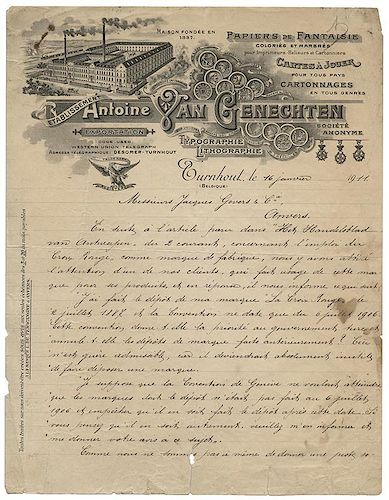 MAISON FONDÉE EN
1837.
PAPIERS DE FANTAISIE
COLORIÉS ET MARBRÉS
pour Imprimeurs-Relieurs et Cartonniers
CARTES À JOUER
POUR TOUS PAYS
CARTONNAGES
EN TOUS GENRES
ETABLISSEMENTS
Antoine VAN GENECHTEN
SOCIÉTÉ
ANONYME
EXPORTATION
CODE USED
WESTERN UNION TELEGRAPH
ADRESSE TÉLÉGRAPHIQUE: DESOMER-TURNHOUT
TYPOGRAPHIE
LITHOGRAPHIE
Turnhout, le 16 janvier 1911.
(BELGIQUE)
Messieurs Jacques Gevers & Cie
Anvers.
En suite à l'article paru dans "Het Handelsblad
van Antwerpen, du 2 courant, concernant l'emploi de
Croix Rouge, comme marque de fabrique, nous y avons attiré
l'attention d'un de nos clients, qui fait usage de cette marque
pour ses produits, et en réponse, il nous informe ce qui suit:
J'ai fait le dépôt de ma marque "La Croix Rouge
juillet 1887 et la Convention ne date que du 6 juillet 1906
Cette convention donne t elle la priorité au gouvernement
annule t elle les dépôts de marque faits antérieurement?
n'est guère admissible, car il deviendrait absolument inutile
de faire déposer une marque.
J'y suppose que la Convention de Genève ne voulait atteindre
que les marques dont le dépôt n'était pas fait au 6 juillet,
1906 et empêcher qu'il en soit fait le dépôt après cette date. Si
vous pensez qu'il en soit autrement, veuillez m'en informer et
me donner votre avis à ce sujet.
Comme nous ne sommes pas à même de donner une